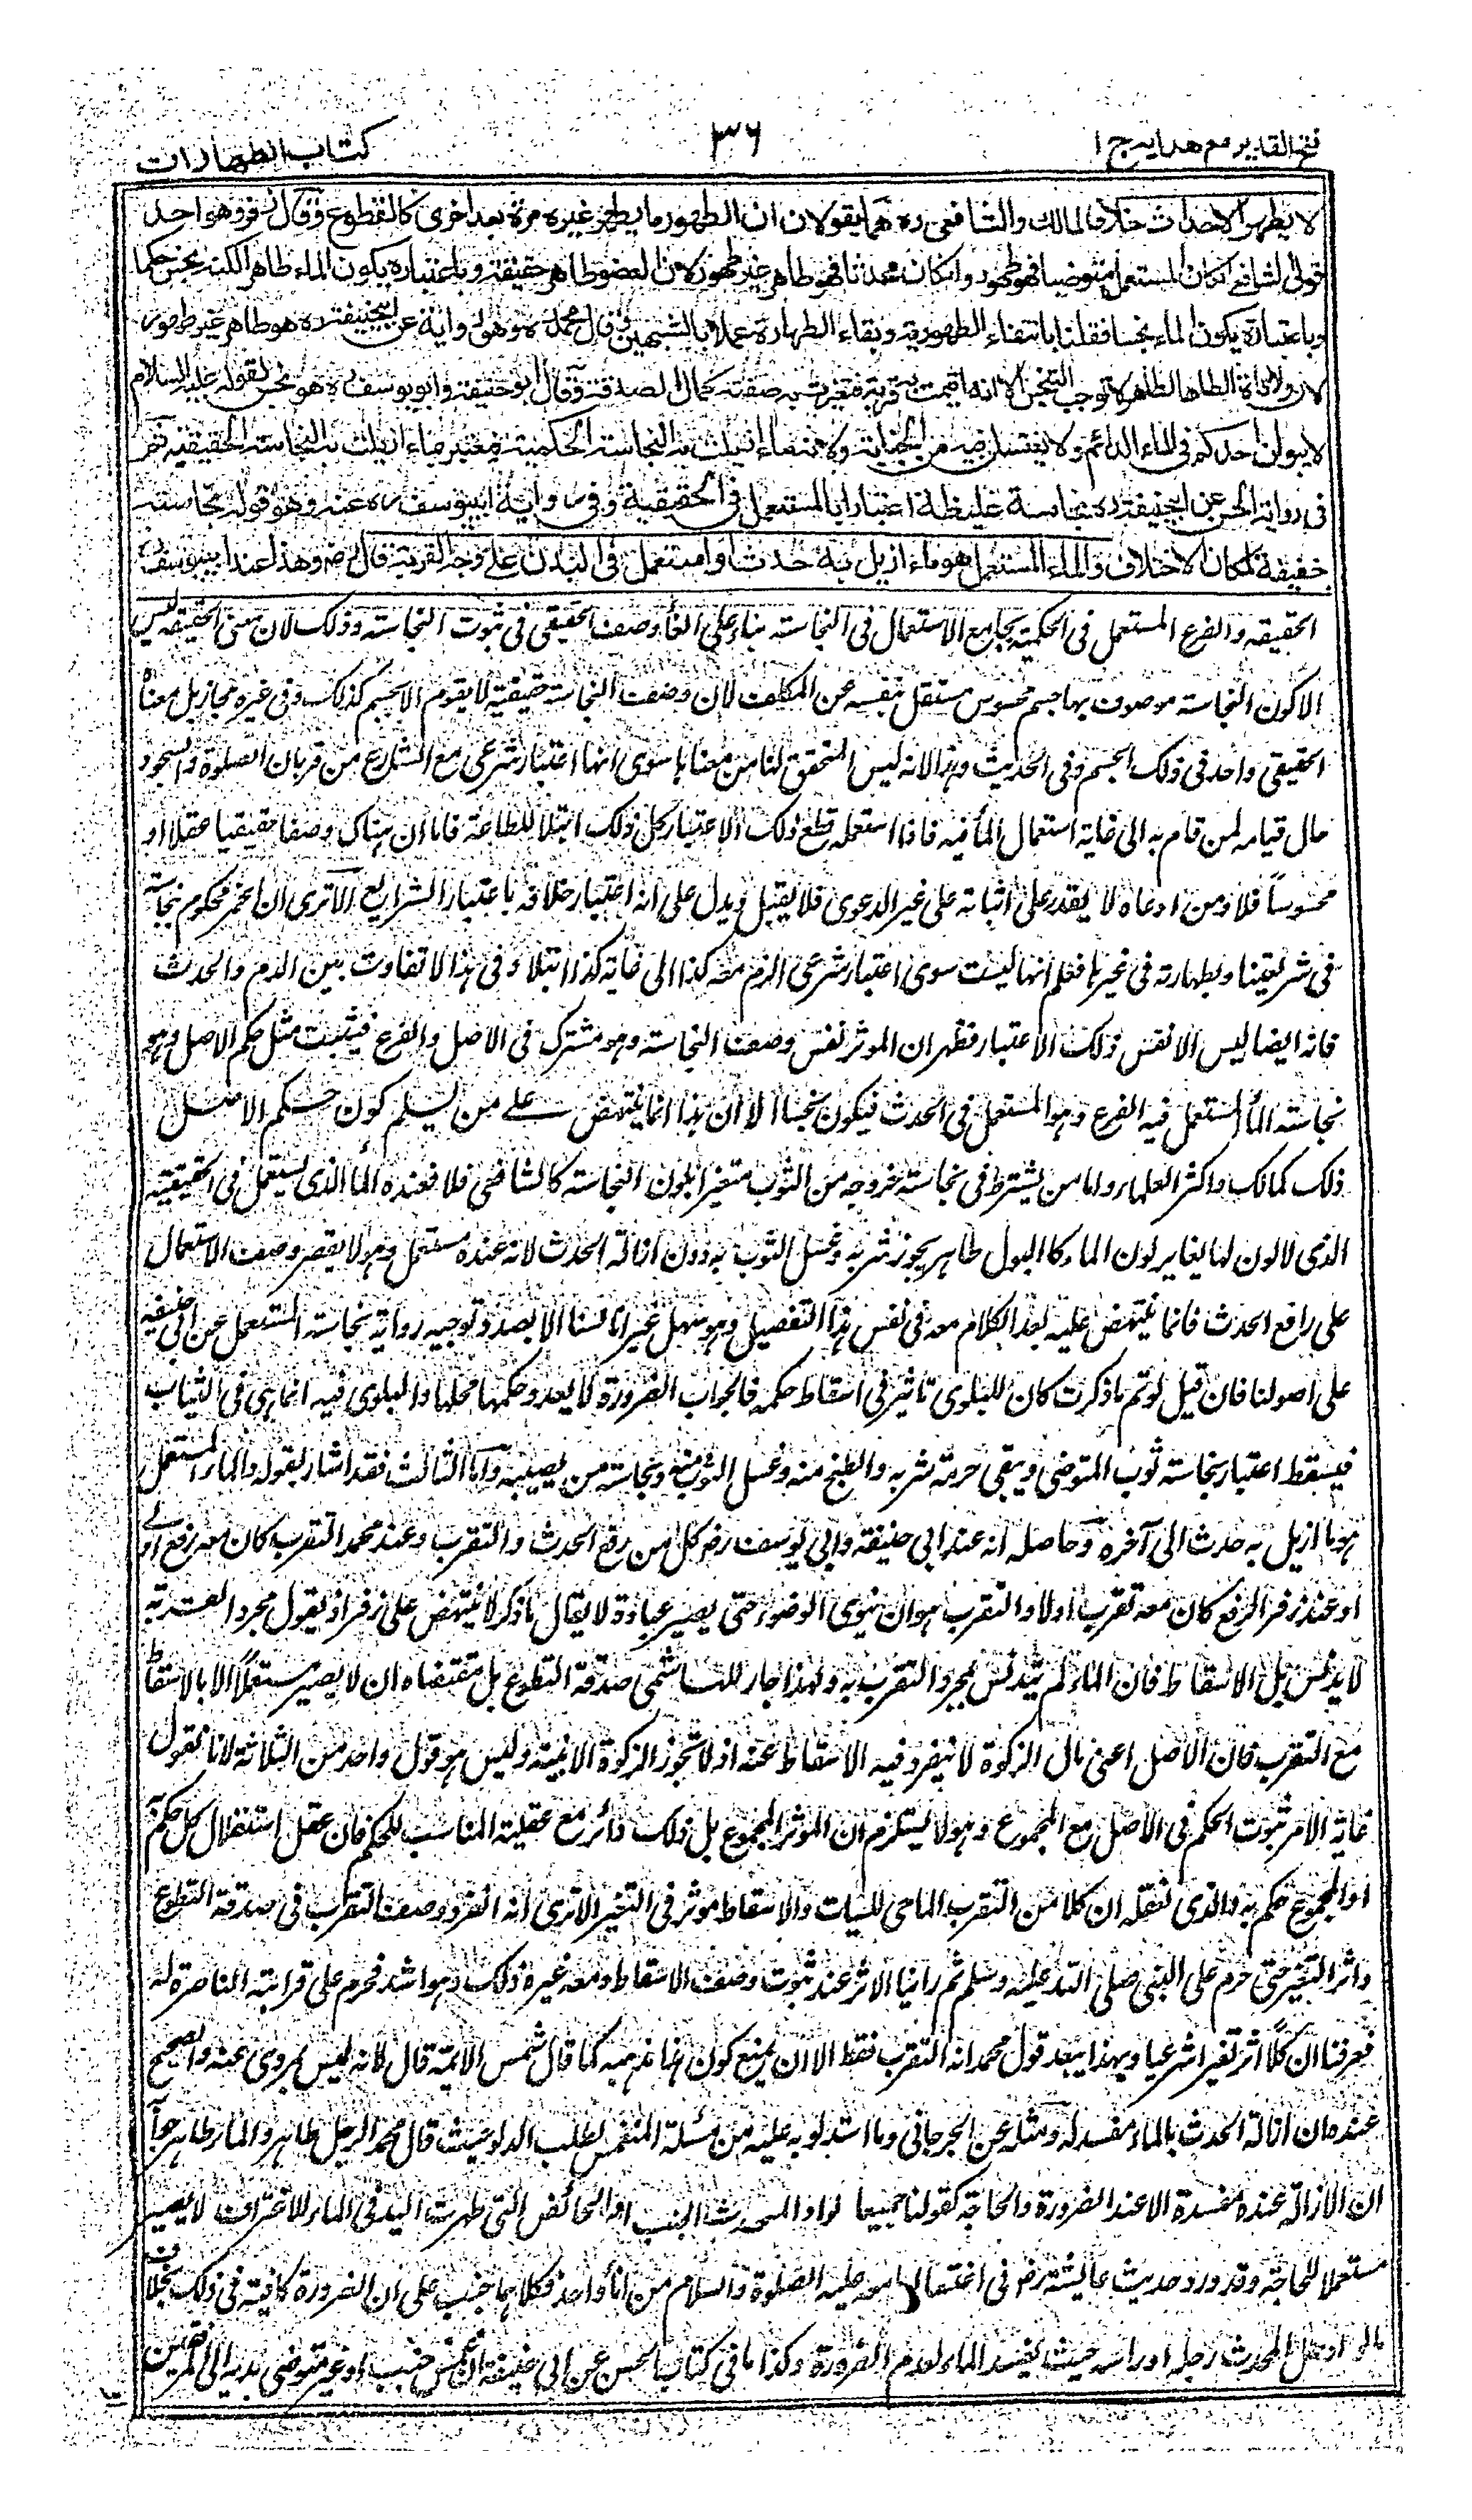 فتح القدير مع هدايه ج ١
٣٦
كتاب الطهارات
لا يطهر الاحداث خلافا لمالك والشافعى ره هما يقولان ان الطهور ما يطهر غيره مرة بعد اخرى كالقطوع وقال زفر وهو احد
قولى الشافعى ان كان المستعمل متوضيا فهو طهور وان كان محدثا فهو طاهر غير طهور لان العضو طاهر حقيقة وباعتباره يكون الماء طاهرا لكنه نجس حكما
وباعتباره يكون الماء نجسا فقلنا بانتفاء الطهورية وبقاء الطهارة عملا بالشبهين وقال محمد ره وهو رواية عن ابيحنيفة ره هو طاهر غير طهور
لان ملاقاة الطاهر الطاهر لا توجب التنجس الا انه اقيمت به قربة فتغيرت به صفته كمال الصدقة وقال ابو حنيفة وابو يوسف ره هو نجس لقوله عليه السلام
لا يبولن احدكم فى الماء الدائم ولا يغتسلن فيه من الجنابة ولانه ماء ازيلت به النجاسة الحكمية فيعتبر بماء ازيلت به النجاسة الحقيقية ثم
فى رواية الحسن عن ابيحنيفة ره نجاسة غليظة اعتبارا بالمستعمل فى الحقيقية وفى رواية ابييوسف ره عنه وهو قوله نجاسته
خفيفة لمكان الاختلاف والماء المستعمل هو ماء ازيل به حدث او استعمل فى البدن على وجه القربة قال رضه وهذا عند ابييوسف
الحقيقه والفرع المستعمل فى الحكمية بجامع الاستعمال فى النجاسته بناء على الغاء وصف الحقيقى فى ثبوت النجاسته وذلك لان معنى الحقيقه ليس
الا كون النجاسته موصوف بها جسم محسوس مستقل بنفسه عن المكلف لان وصف النجاسته حقيقية لا يقوم الا بجسم كذلك وفى غيره مجاز بل معناه
الحقيقى واحد فى ذلك الجسم وفى الحديث وهذا لانه ليس المتحقق لنا من معناها سوى انها اعتبار شرعى مع الشارع من قربان الصلوة والسجود
حال قيامه لمن قام به الى غاية استعمال الماء فيه فاذا استعمله قطع ذلك الاعتبار كل ذلك ابتلاء للطاعة فاما ان هناك وصفا حقيقيا عقليا او
محسوساً فلا ومن ادعاه لا يقدر على اثباته على غير الدعوى فلا يقبل ويدل على انه اعتبار خلافه باعتبار الشرايع الا ترى ان الخمر محكوم بنجاسته
فى شريعتنا وبطهارته فى غيرها فعلم انها ليست سوى اعتبار شرعى الزم معه كذا الى غاية كذا ابتلاء وفى هذا لا تفاوت بين الدم والحدث
فانه ايضا ليس الا نفس ذلك الاعتبار فظهر ان الموثر نفس وصف النجاسته وهو مشترك فى الاصل والفرع فيثبت مثل حكم الاصل وهو
نجاسته الماء المستعمل فيه الفرع وهو المستعمل فى الحدث فيكون نجسا الا ان هذا انما ينتهض على من يسلم كون حكم الاصل
ذلك كمالك واكثر العلماء واما من يشترط فى نجاسته خروجه من الثوب متغيرا بلون النجاسته كالشافعى فلا فعنده الماء الذى يستعمل فى الحقيقية
الذى لا لون لها يغاير لون الماء كالبول طاهر يجوز شربه وغسل الثوب به دون ازالة الحدث لانه عنده مستعمل وهو لا يقصر وصف الاستعمال
على رافع الحدث فانما ينتهض عليه بعد الكلام معه فى نفس هذا التفصيل وهو سهل غير انا لسنا الا بصدد توجيه رواية نجاسته المستعمل عن ابى حنيفه
على اصولنا فان قيل لو تم ما ذكرت كان للبلوى تاثير فى اسقاط حكمه فالجواب الضرورة لا يعدو حكمها محلها والبلوى فيه انما هى فى الثياب
فيسقط اعتبار نجاسته ثوب المتوضى ويبقى حرمة شربه والطبخ منه وغسل الثوب منه ونجاسته من يصيبه واما الثالث فقد اشار بقوله والماء المستعمل
هو ما ازيل به حدث الى آخره وحاصله انه عند ابى حنيفة وابى يوسف رضه كل من رفع الحدث والتقرب وعند محمد التقرب كان معه رفع او لا
او عند زفر الرفع كان معه تقرب اولا والتقرب هو ان ينوى الوضوء حتى يصير عبادة لا يقال ما ذكر لا ينتهض على زفر اذ يقول مجرد القربة
لا يدنس بل الاسقاط فان الماء لم يتدنس بمجرد التقرب به ولهذا جاز للهاشمى صدقة التطوع بل مقتضاه ان لا يصير مستعملاً الا بالاسقاط
مع التقرب فان الاصل اعنى مال الزكوة لا ينفرد فيه الاسقاط عنه اذ لا تجوز الزكوة الا بنية وليس هو قول واحد من الثلاثة لانا نقول
غاية الامر ثبوت الحكم فى الاصل مع المجموع وهو لا يستلزم ان الموثر المجموع بل ذلك دائر مع عقلية المناسب للحكم فان عقل استقلال كل حكم به
او المجموع حكم به والذى نعقله ان كلا من التقرب الماحى للسيات والاسقاط موثر فى التغير الا ترى انه انفرد وصف التقرب فى صدقة التطوع
واثر التغير حتى حرم على النبى صلى الله عليه وسلم ثم راينا الاثر عند ثبوت وصف الاسقاط ومعه غيره ذلك وهو اشد فحرم على قرابته الناصرة له
فعرفنا ان كلاً اثر تغيرا شرعيا وبهذا يبعد قول محمد انه التقرب فقط الا ان يمنع كون هذا مذهبه كما قال شمس الائمة قال لانه ليس بمروى عنه والصحيح
عنده ان ازالة الحدث بالماء مفسد له ومثله عن الجرجانى وما استدلوا به عليه من مسئلة المنغمس لطلب الدلو حيث قال محمد الرجل طاهر والماء طاهر جوابه
ان الازالة عنده مفسدة الا عند الضرورة والحاجة كقولنا جميعا لو ادخل المحدث الجنب او الحائض التى طهرت اليد فى الماء للاغتراف لا يصير
مستعملا للحاجة وقد ورد حديث عايشة رضه فى اغتسالها معه عليه الصلوة والسلام من اناء واحد فكلاهما جنب على ان الضرورة كافية فى ذلك بخلاف
ما لو ادخل المحدث رجله او راسه حيث يفسد الماء لعدم الضرورة وكذا ما فى كتاب الحسن عن ابى حنيفة ان غمس جنب او غير متوضى يديه الى المرفقين